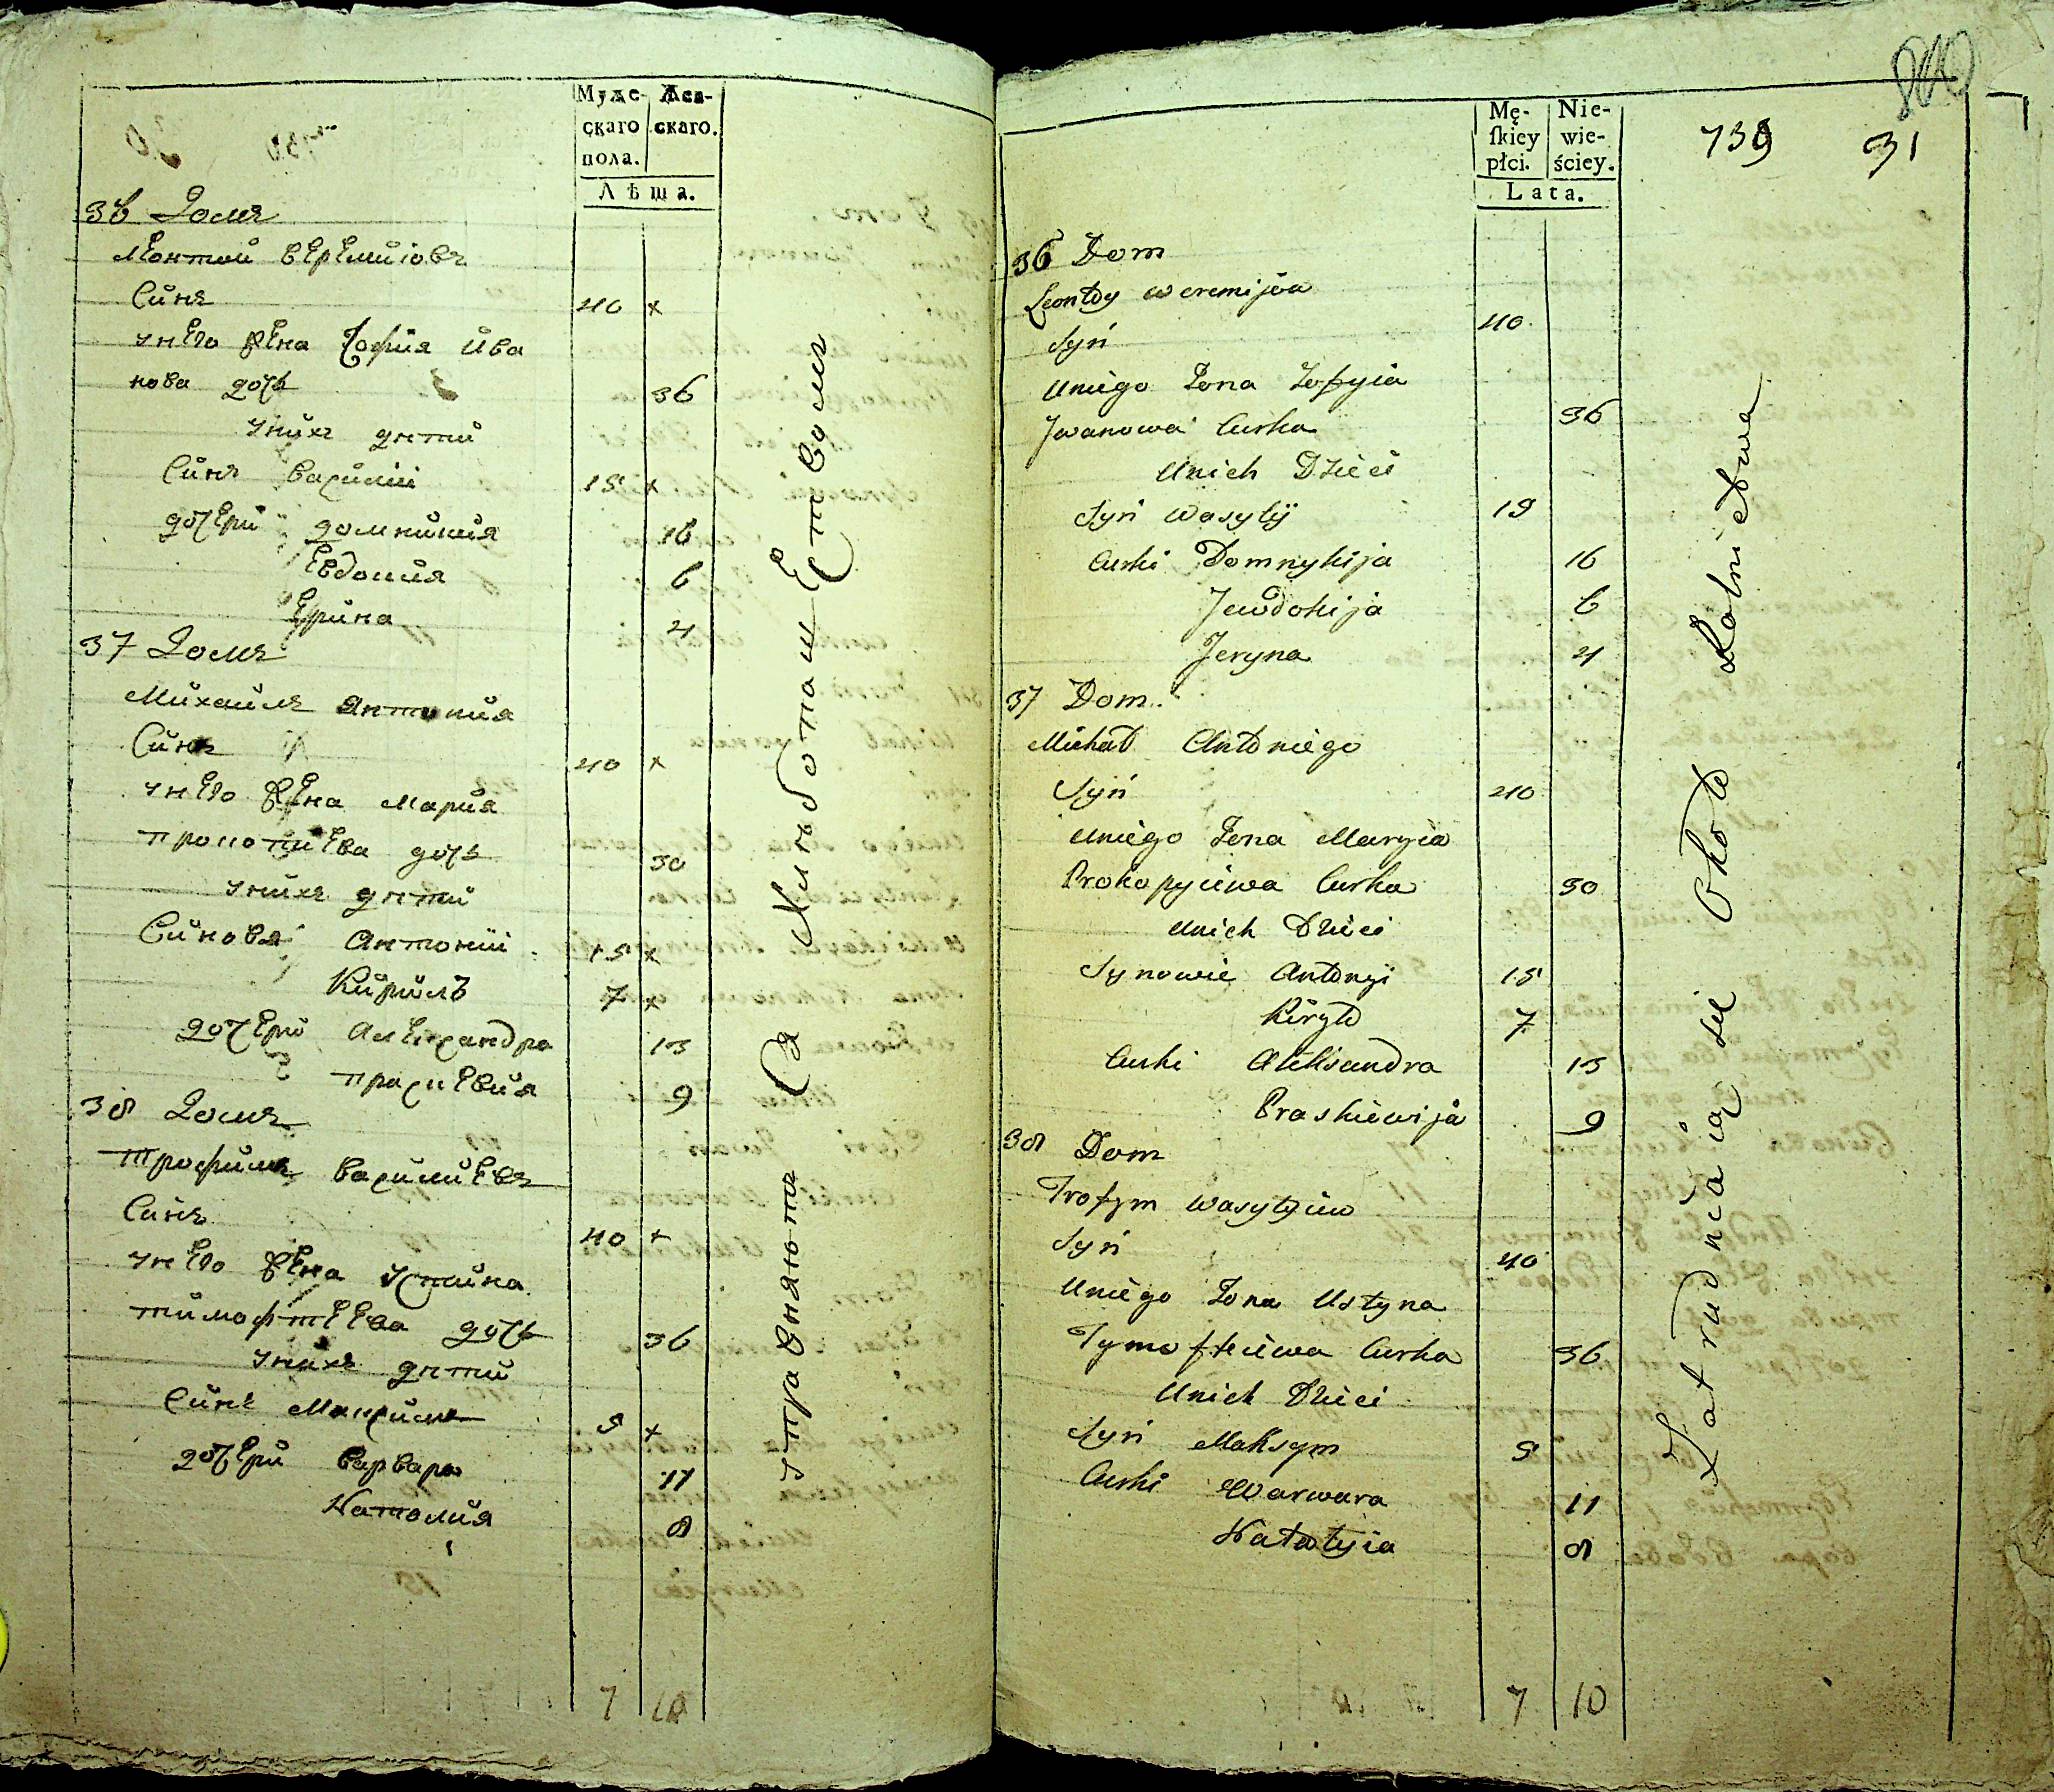 Муже-
скаго
пола.
Жен-
скаго.
Лѣта.
36 Домъ
Леонтий Веремиiовъ
Синъ 40 ×
У него жена Зофия Ива
нова дочь 36
У нихъ дѣти
Синъ Василий 19 ×
дочери домникия 16
Евдокия 6
Ерина 4
37 Домъ
Михаилъ Антония
Синъ 40 ×
У него жена Мария
Прокопиева дочь 30
У нихъ дѣти
Синовя Антоний 15 ×
Кирилъ 7 ×
дочери Александра 13
Прасκевия 9
38 Домъ
Трофимъ Василиевъ
Синъ 40 +
У него жена Устина
Тимофтеева дочь 36
У нихъ дѣти
Синъ Максимъ 5 ×
дочери Варвара 11
Наталия 8
7 10
Упражняются Хлѣбопашеством
800
739 31
Mę-
ſkiey
płci.
Nie-
wie-
ściey.
Lata.
36 Dom
Leonty Weremijów
Syn 40
Uniego Żona Zofyia
Jwanowa Curka 36
Unich Dzieci
Syn Wasylij 19
Curki Domnykija 16
Jewdokija 6
Jeryna 4
37 Dom
Michał Antoniego
Syn 40
Uniego Żona Maryia
Prokopyiewa Curka 30
Unich Dzieci
Synowie Antonyi 15
Kiryło 7
Curki Aleksandra 13
Praskiewija 9
38 Dom
Trofym Wasylyiew
Syn 40
Uniego Żona Ustyna
Tymofteiewa Curka 36
Unich Dzieci
Syn Maksym 5
Curki Warwara 11
Natalyia 8
7 10
Zatrudniaią się Około Rolnictwa